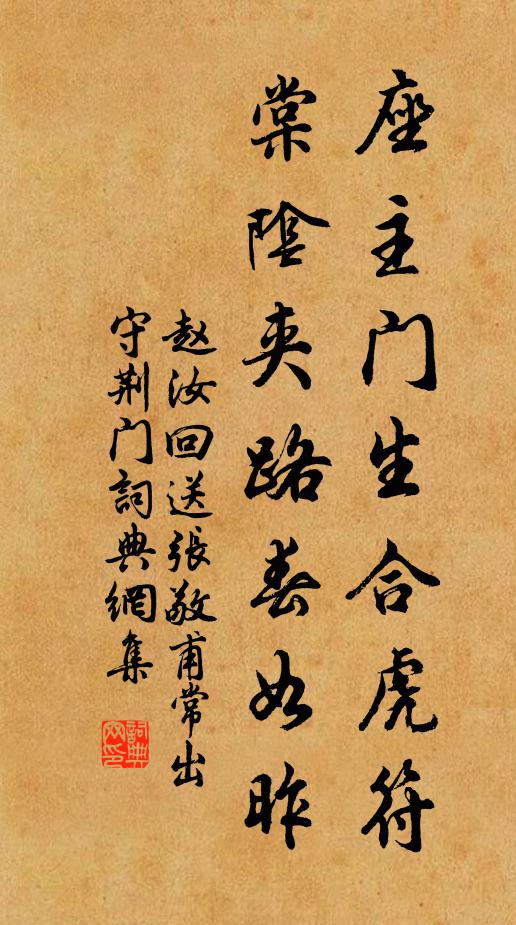 座主门生合虎符
棠陰夹路春如昨
赵汝回送張敬甫常出
守荆门詞典網集
詞典
网印